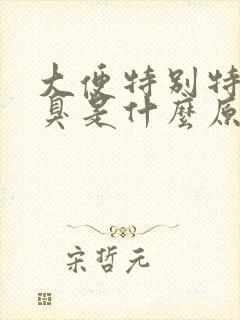 大便特别特
臭是什麼原
宋哲元